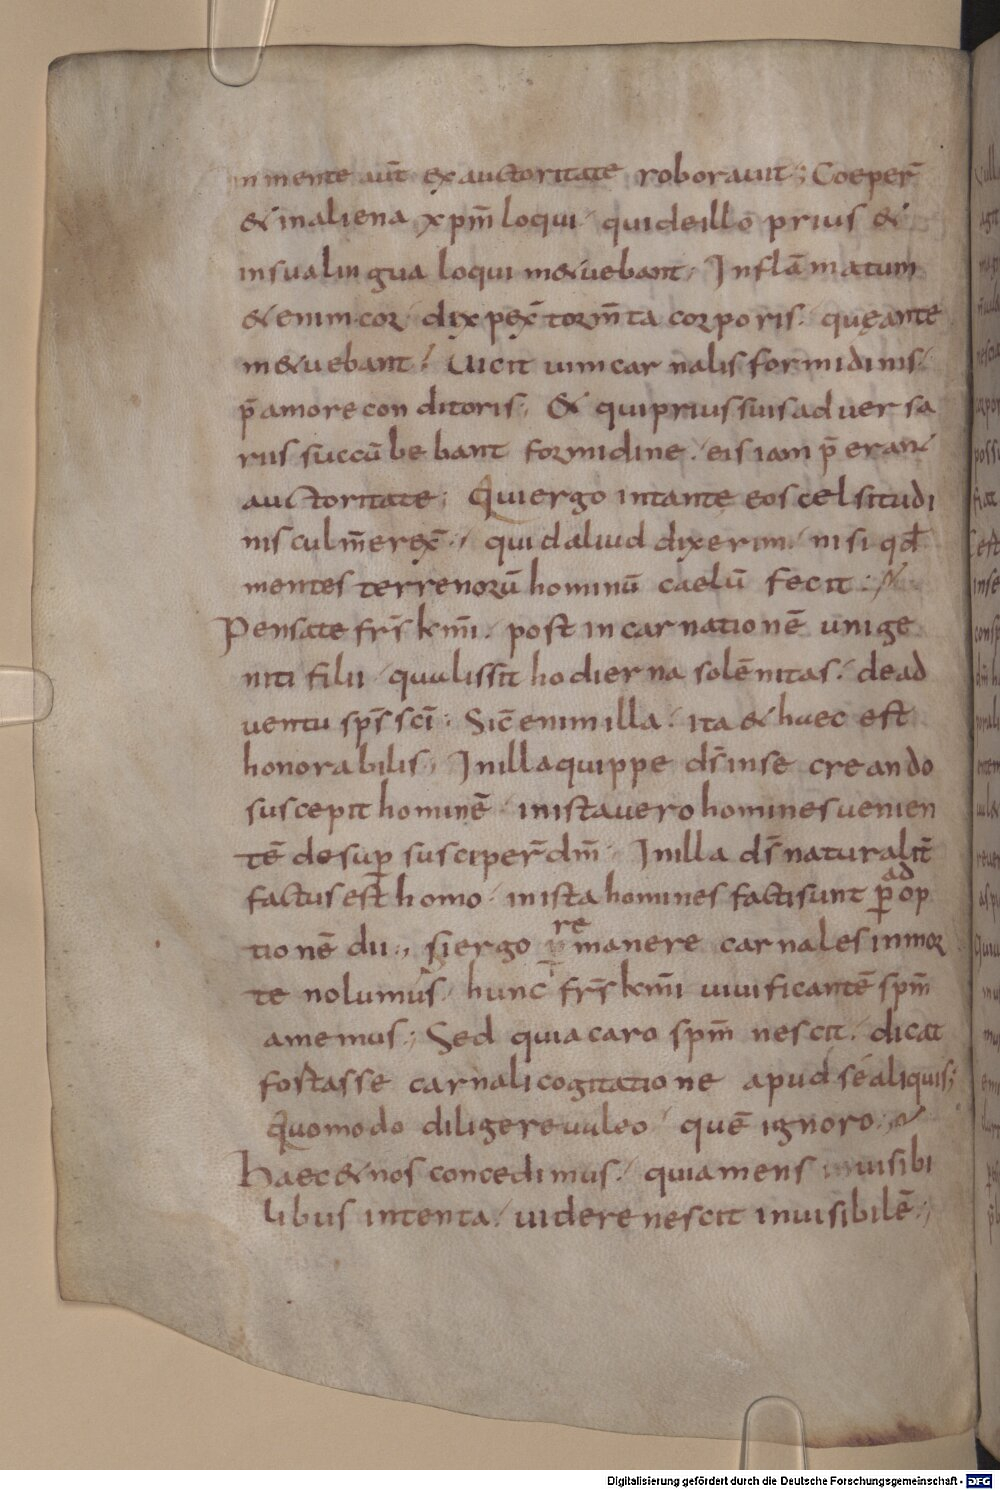 in mente aut̄ ex auctoritate roborauit; Coeper̄
& in aliena xpm̄ loqui. qui de illo prius &
in sua lingua loqui m&uebant. Inflāmatum
& enim cor. dixpex̄ torm̄ta corporis. quę ante
m&uebant. Uicit uim carnalis formidinis.
p̄ amore conditoris. & qui prius suis aduersa
riis succūbebant formidine. eis iam p̄erant
auctoritate; Qui ergo intante eos celsitudi
nis culm̄ erex̄. quid aliud dixerim. nisi qd̄
mentes terrenorū hominū caelū fecit:
Pensate frs̄ km̄i. post incarnationē unige
niti filii. qualis sit hodierna solēnitas. de ad
uentu sps̄ sc̄i. Sic̄ enim illa. ita & haec est
honorabilis. In illa quippe ds̄ in se creando
suscepit hominē. in ista uero homines uenien
tē desup̱ susceper̄ dm̄. In illa ds̄ naturalit̄
factus est homo. in ista homines facti sunt p̱ adop
tionē dii., si ergo remanere carnales in mor
te nolumus. hunc̄ frs̄ km̄i uiuificantē spm̄
amemus; Sed quia caro spm̄ nescit. dicat
fostasse carnali cogitatione apud sé aliquis;
Quomodo diligere ualeo. quē ignoro;
Haec & nos concedimus. quia mens inuisibi
libus intenta. uidere nescit inuisibilē.;
Digitalisierung gefördert durch die Deutsche Forschungsgemeinschaft - DFG